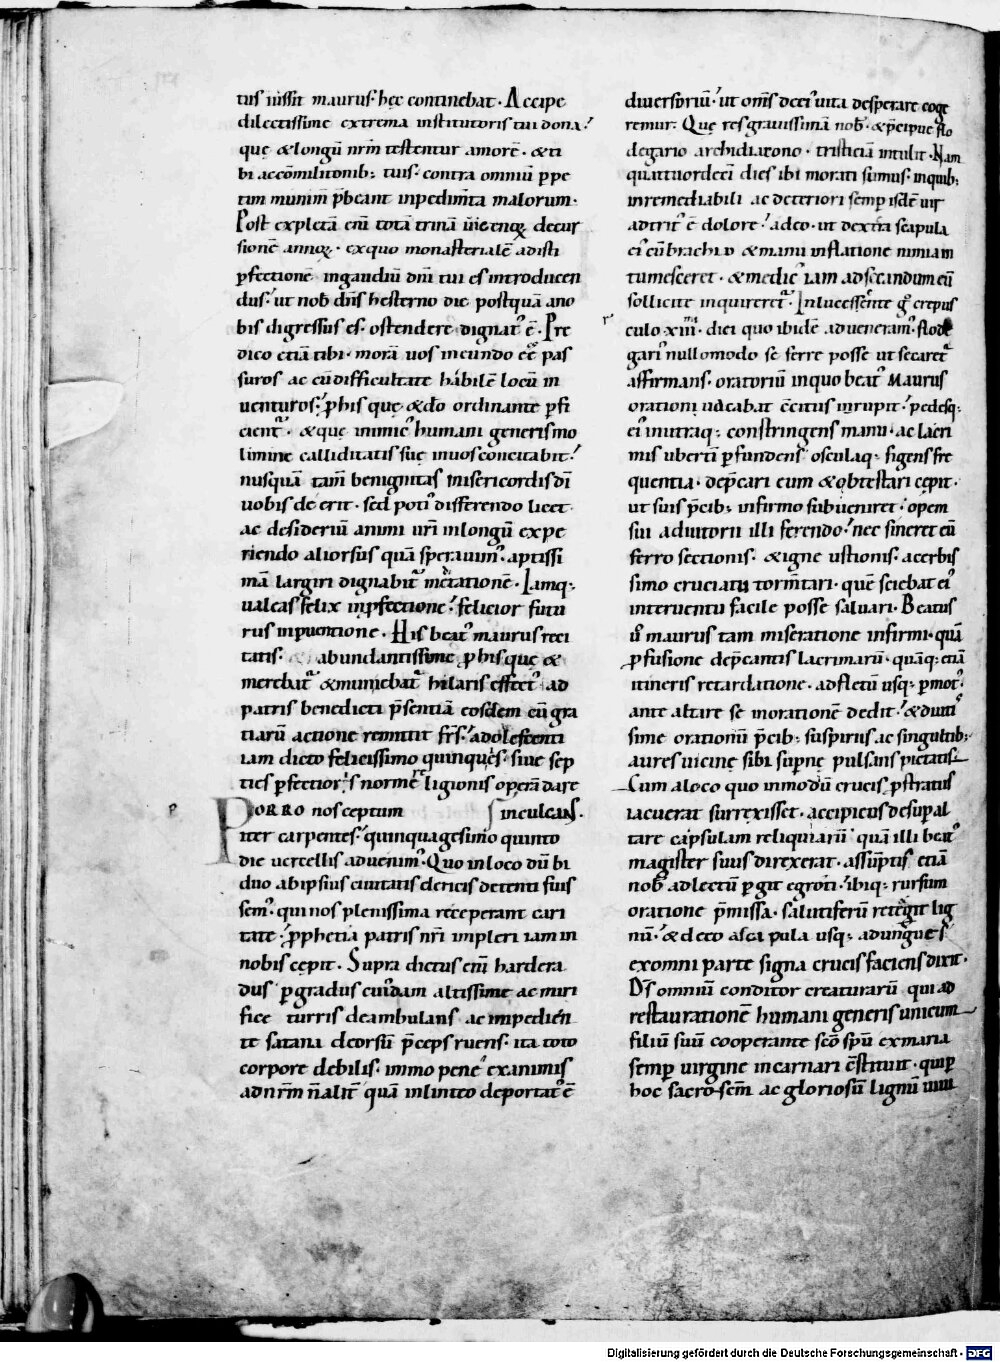 tus iussit maurus· hęc continebat· Accipe
dilectissime extrema institutoris tui dona!
quę & longū nr̄m testentur amorē· & ti
bi accōmilitonib; tuis· contra omniū ꝑpe
tim munim p̄beant inpedim̄ta malorum·
Post expletā eni totā trinā
sionē annoꝝ· ex quo monasterialē adisti
ꝑfectionē in gaudiū dn̄i tui es introducen
dus! ut nob dn̄s hesterno die postquā ano
bis digressus es· ostendere dignatˀ ē· Pre
dico etiā tibi· morā uos in eundo eē pas
suros ac cū difficultate hábilē locū in
uenturos! ꝓ his quę & do ordinante ꝑfi
cient᷑· & quę inimicˀ humani generis mo
limine calliditatis suę in uos concitabit!
nusquā tam̄ benignitas misericordis dī
uobis de erit· sed potiˀ differendo licet
ac desideriū animi ur̄i in longū expe
riendo aliorsus quā sperauimˀ· aptissi
mā largiri dignabit᷑ Iamq;
ualeas felix in ꝑfectione! felicior futu
rus in puentione· His beatˀ maurus reci
tatis· abundantissime ꝓ his quę &
mereba᷑t & munieba᷑t hilaris effectˀ ad
patris benedicti p̄sentiā eosdem cū gra
tiarū actione remittit fr̄s! adolescenti
iam dicto felicissimo quinquēs· siue sep
ties ꝑfectioris normę religionis operā dare
PORRO nos ceptum sinculcans·
iter carpentes! quinquagesimo quinto
die uercellis aduenimˀ· Quo in loco dū bi
duo ab ipsius ciuitatis clericis detenti fuis
semˀ· qui nos plenissima receperant cari
tate! ꝓphetia patris nr̄i impleri iam in
nobis cępit· Supra dictus eni hardera
dus ꝑ gradus cuiꝰdam altissimę ac miri
ficę turris deambulans ac impedien
te satana deorsū p̄ceps ruens· ita toto
corpore debilis· immo pene exanimis
ad nr̄m n̄ alit᷑ quā in linteo deportatˀ ē
diuersoriū! ut om̄s de eiˀ uita desperare coge
remur· Quę res grauissimā nob· & p̄cipue flo
degario archidiacono· tristiciā intulit· Nam
quattuordeci dies ibi morati sumus· in quib;
inremediabili ac deteriori semꝑ isdē uir
adtritˀ ē dolore! adeo· ut dextra scapula
eiˀ cū brachio & manu inflatione nimiam
tumesceret· & medicˀ iam ad secandum eū
sollicite inquireret᷑· In lucessente g̊ crepus
culo xiiii· diei quo ibidē adueneramˀ· flode
gariˀ nullomodo se ferre posse ut secaret᷑
affirmans· oratoriū in quo beatˀ Maurus
orationi uacabat c̄citus inrupit! pedesq;
eiˀ in utraq; constringens manu· ac lacri
mis ubertī ꝑfundens osculaq; figens fre
quentia· dep̄cari eum & obtestari cepit·
ut suis p̄cib; infirmo subueniret! opem
sui adiutorii illi ferendo! nec sineret eū
ferro sectionis· & igne ustionis· acerbis
simo cruciatu torm̄tari· quē sciebat eiˀ
interuentu facile posse saluari· Beatus
u̅ maurus tam miseratione infirmi· quā
ꝓfusione dep̄cantis lacrimarū· quāq; etiā
itineris retardatione· ad fletū usq; ꝑmotˀ·
ante altare se in orationē dedit! & diuti
sime orationū p̄cib; suspiriis ac singultib;
aures uicinę sibi supernę pulsans pietatis
Cum a loco quo in modū crucis p̄stratus
iacuerat surrexisset· accipiens desup al
tare capsulam reliquiarū quā illi beatˀ
magister suus direxerat· assūptis etiā
nob ad lectū ꝑgit ęgroti! ibiq; rursum
oratione p̄missa· salutiferū retegit lig
nū! & deto a scapula usq; ad ungues
ex omni parte signa crucis faciens dixit·
Ds̄ omniū conditor creaturarū qui ad
restaurationē humani generis unicum
filiū suū cooperante sc̄o spū ex maria
semꝑ uirgine incarnari c̄stituit· quiꝑ
hoc sacro sc̄m ac gloriosū lignū uiui
Digitalisierung gefördert durch die Deutsche Forschungsgemeinschaft · DFG